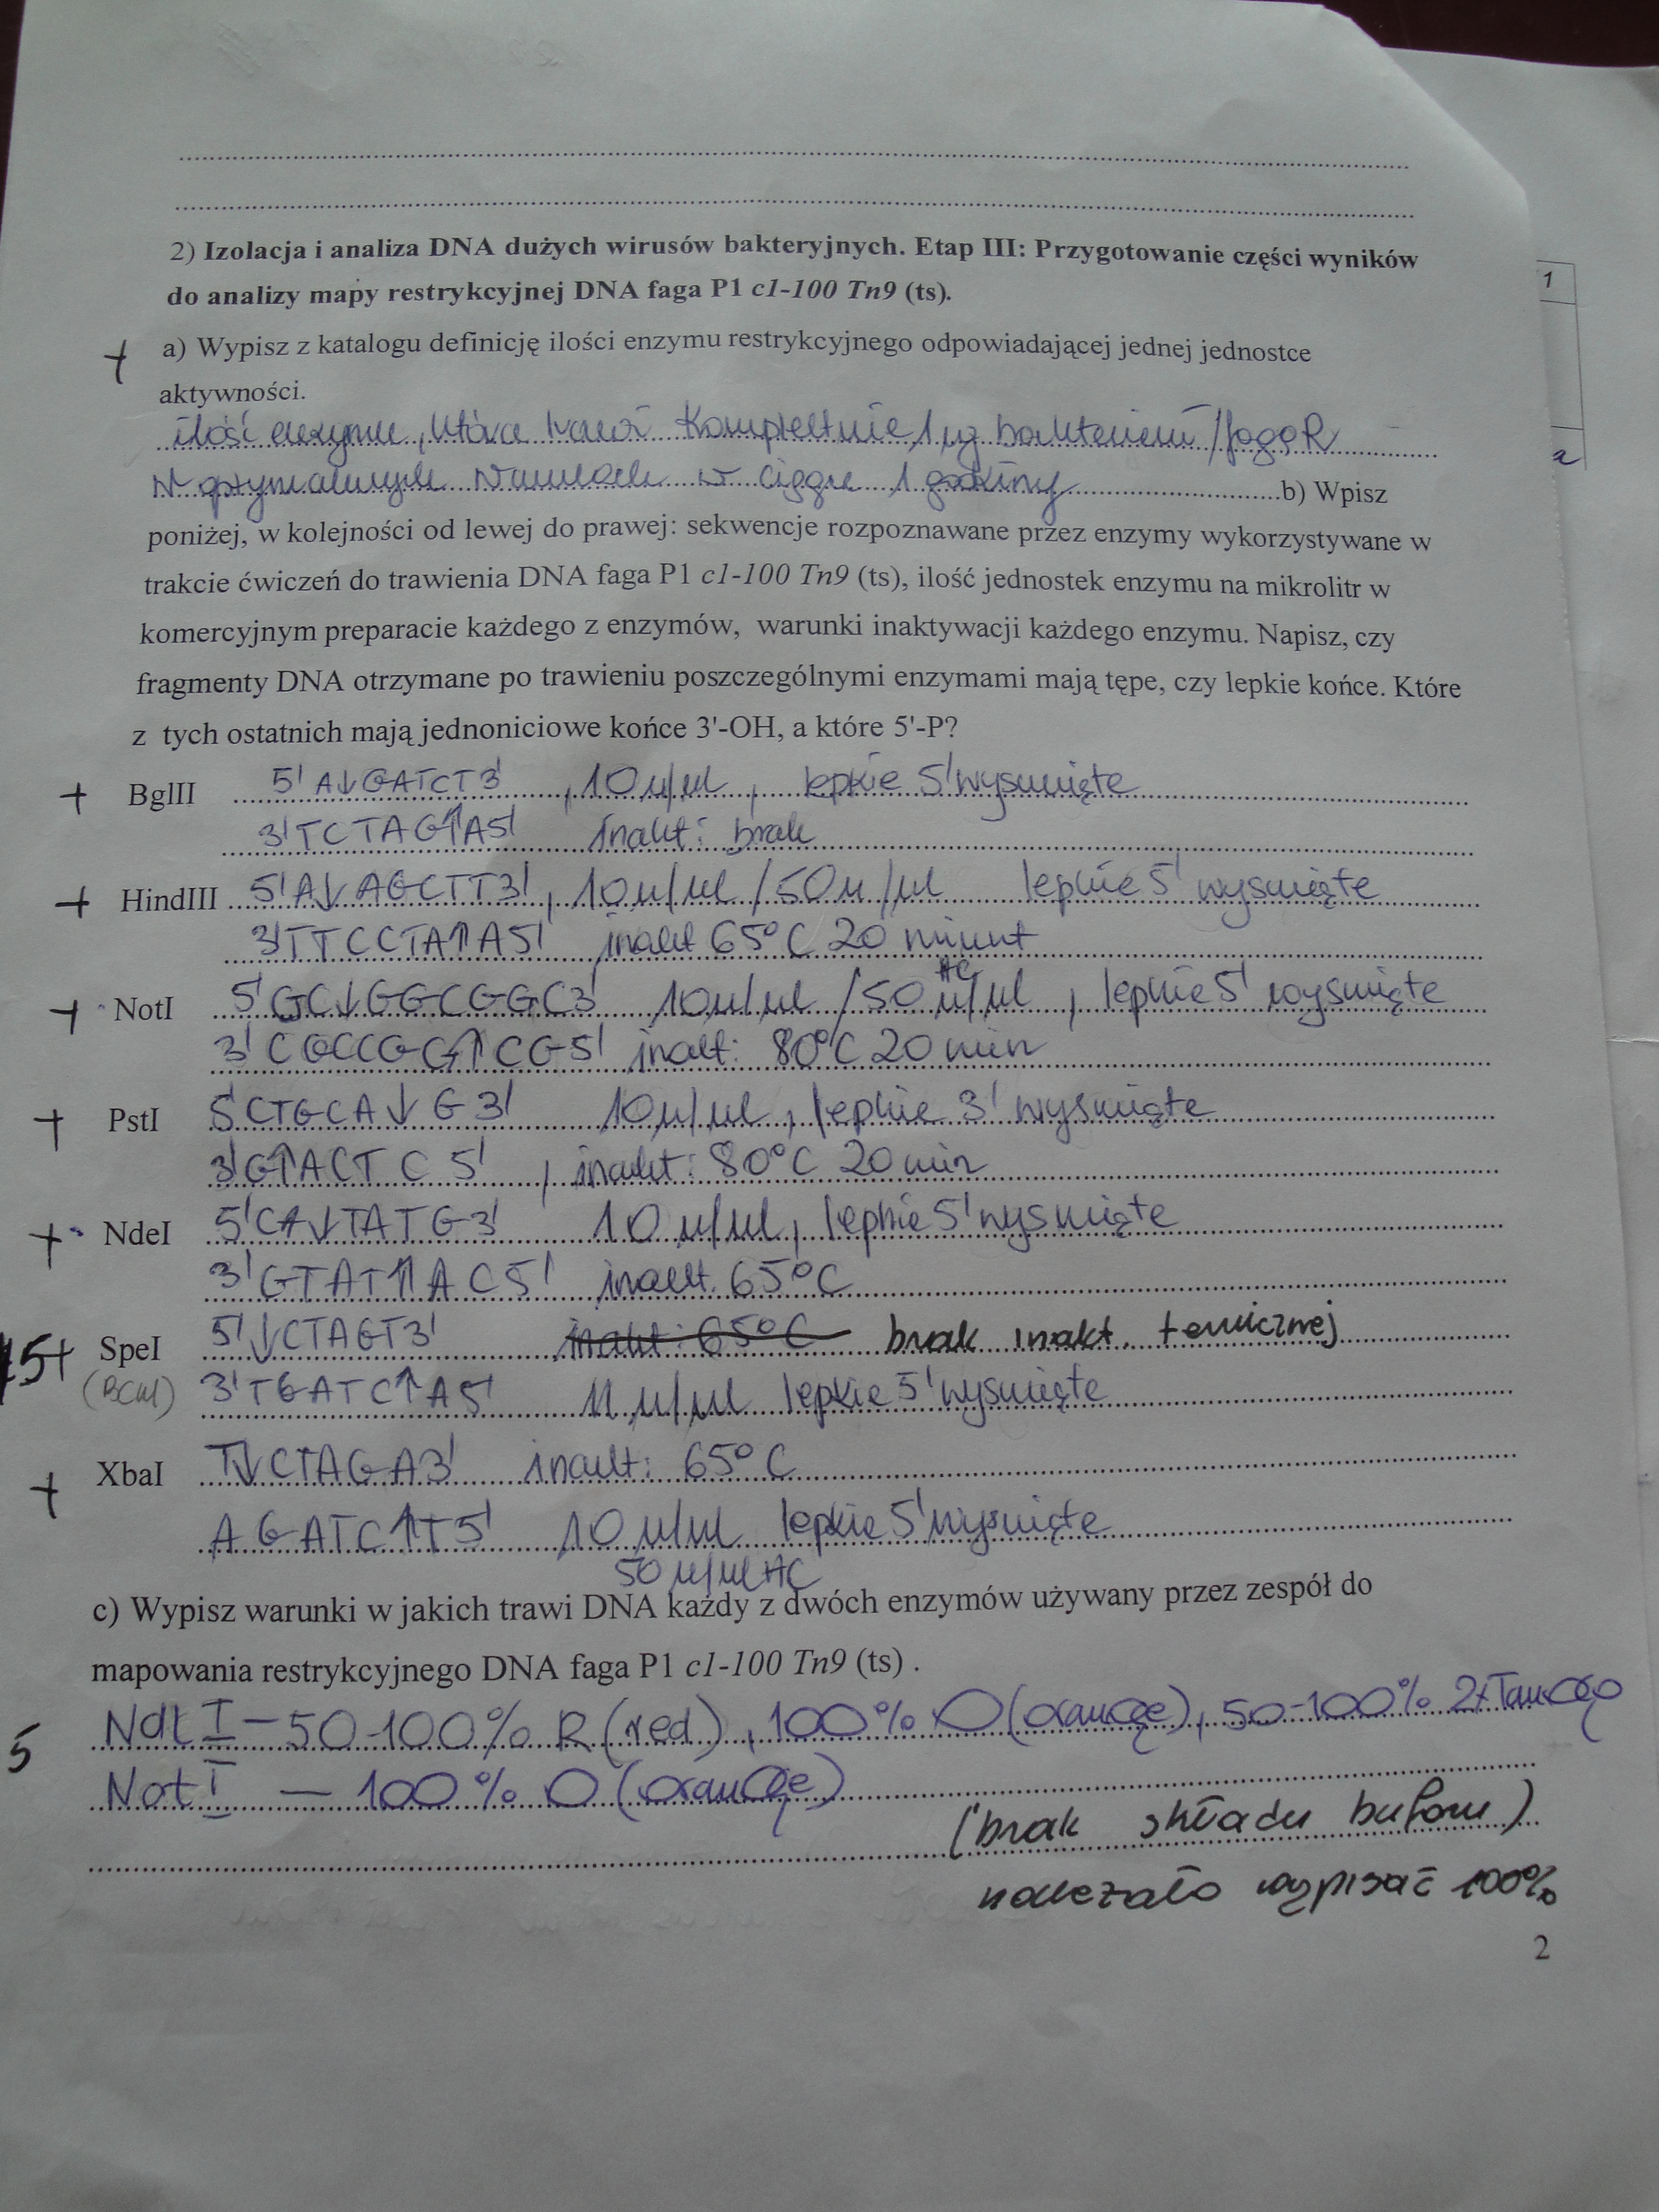 2) Izolacja i analiza DNA dużych wirusów bakteryjnych. Etap III: Przygotowanie części wyników
do analizy mapy restrykcyjnej DNA faga P1 c1-100 Tn9 (ts).
1
+ a) Wypisz z katalogu definicję ilości enzymu restrykcyjnego odpowiadającej jednej jednostce
aktywności.
ilość enzymu, która trawi kompletnie 1 µg
w optymalnych warunkach w ciągu 1 godziny b) Wpisz
poniżej, w kolejności od lewej do prawej: sekwencje rozpoznawane przez enzymy wykorzystywane w
trakcie ćwiczeń do trawienia DNA faga P1 c1-100 Tn9 (ts), ilość jednostek enzymu na mikrolitr w
komercyjnym preparacie każdego z enzymów, warunki inaktywacji każdego enzymu. Napisz, czy
fragmenty DNA otrzymane po trawieniu poszczególnymi enzymami mają tępe, czy lepkie końce. Które
z tych ostatnich mają jednoniciowe końce 3'-OH, a które 5'-P?
+ BglII 5' A↓GATCT3' , 10 u/µl , lepkie 5' wysunięte
3'TCTAG↑A5' inakt: brak
+ HindIII 5'A↓AGCTT3', 10u/µl /50u/µl lepkie 5' wysunięte
3'TTCCTA↑A5' inakt 65°C 20 minut
+ NotI 5'GC↓GGCGGC3' 10u/µl /50 u/µl , lepkie 5' wysunięte
HC
3' CGCCGG↑CG5' inakt: 80°C 20 min
+ PstI 5'CTGCA↓G3' 10u/µl, lepkie 3' wysunięte
3'G↑ACTC 5' , inakt: 80°C 20 min
+ NdeI 5'CA↓TATG3' 10 u/µl, lepkie 5' wysunięte
3'GTAT↑AC5' inakt. 65°C
5+ SpeI 5'↓CTAGT3' inakt: 65°C brak inakt. termicznej
(BcuI) 3'TGATC↑A5' 11 u/µl lepkie 5' wysunięte
+ XbaI T↓CTAGA3' inakt: 65°C
AGATC↑T5' 10 u/µl lepkie 5' wysunięte
50 u/µl HC
c) Wypisz warunki w jakich trawi DNA każdy z dwóch enzymów używany przez zespół do
mapowania restrykcyjnego DNA faga P1 c1-100 Tn9 (ts) .
5 NdeI – 50-100% R (red), 100% O (orange), 50-100% 2xTango
NotI – 100% O (orange)
(brak składu buforu)
należało wypisać 100%
2